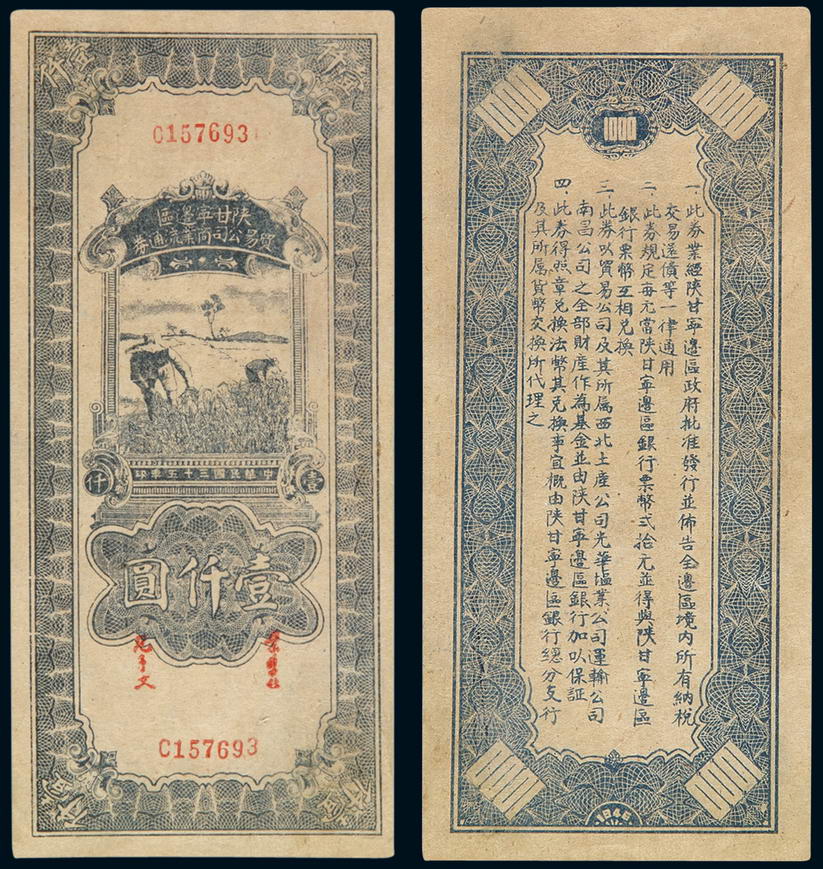 壹仟
壹仟
C157693
陝甘寧邊區
貿易公司商業流通券
中華民國三十五年印
壹仟
壹仟圓
C157693
壹仟
壹仟
1000
1000
1000
一、此券業經陝甘寧邊區政府批准發行並佈告全邊區境內所有納稅
交易還債等一律通用
二、此券規定每元當陝甘寧邊區銀行票幣弍拾元並得與陝甘寧邊區
銀行票幣互相兌換
三、此券以貿易公司及其所屬西北土產公司光華塩業公司運輸公司
南昌公司之全部財產作為基金並由陝甘寧邊區銀行加以保証
四、此券得照章兌換法幣其兌換事宜概由陝甘寧邊區銀行總分支行
及其所屬貨幣交換所代理之
1000
1000
1946